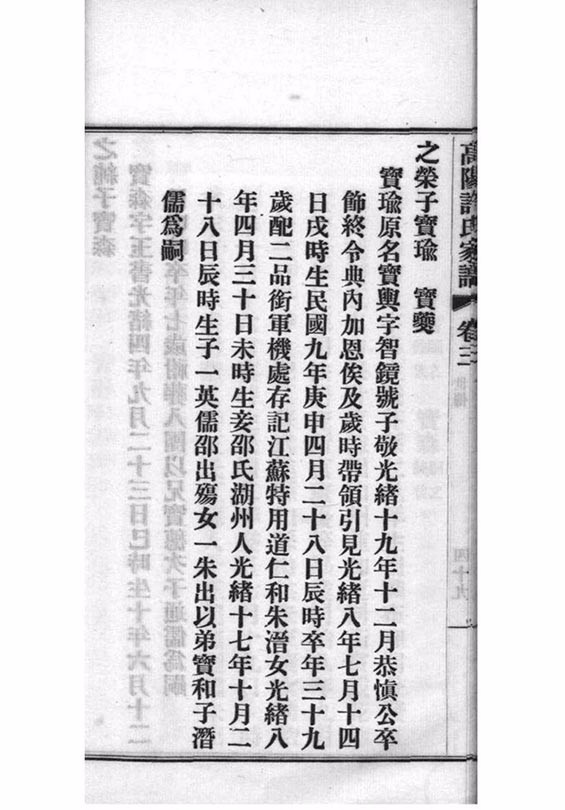 高陽許氏家譜 卷三
四十九
之榮子寶瑜 寶夔
寶瑜原名寶輿字智鏡號子敬光緒十九年十二月恭慎公卒
飾終令典內加恩俟及歲時帶領引見光緒八年七月十四
日戌時生民國九年庚申四月二十八日辰時卒年三十九
歲配二品銜軍機處存記江蘇特用道仁和朱溍女光緒八
年四月三十日未時生妾邵氏湖州人光緒十七年十月二
十八日辰時生子一英儒邵出殤女一朱出以弟寶和子潛
儒為嗣